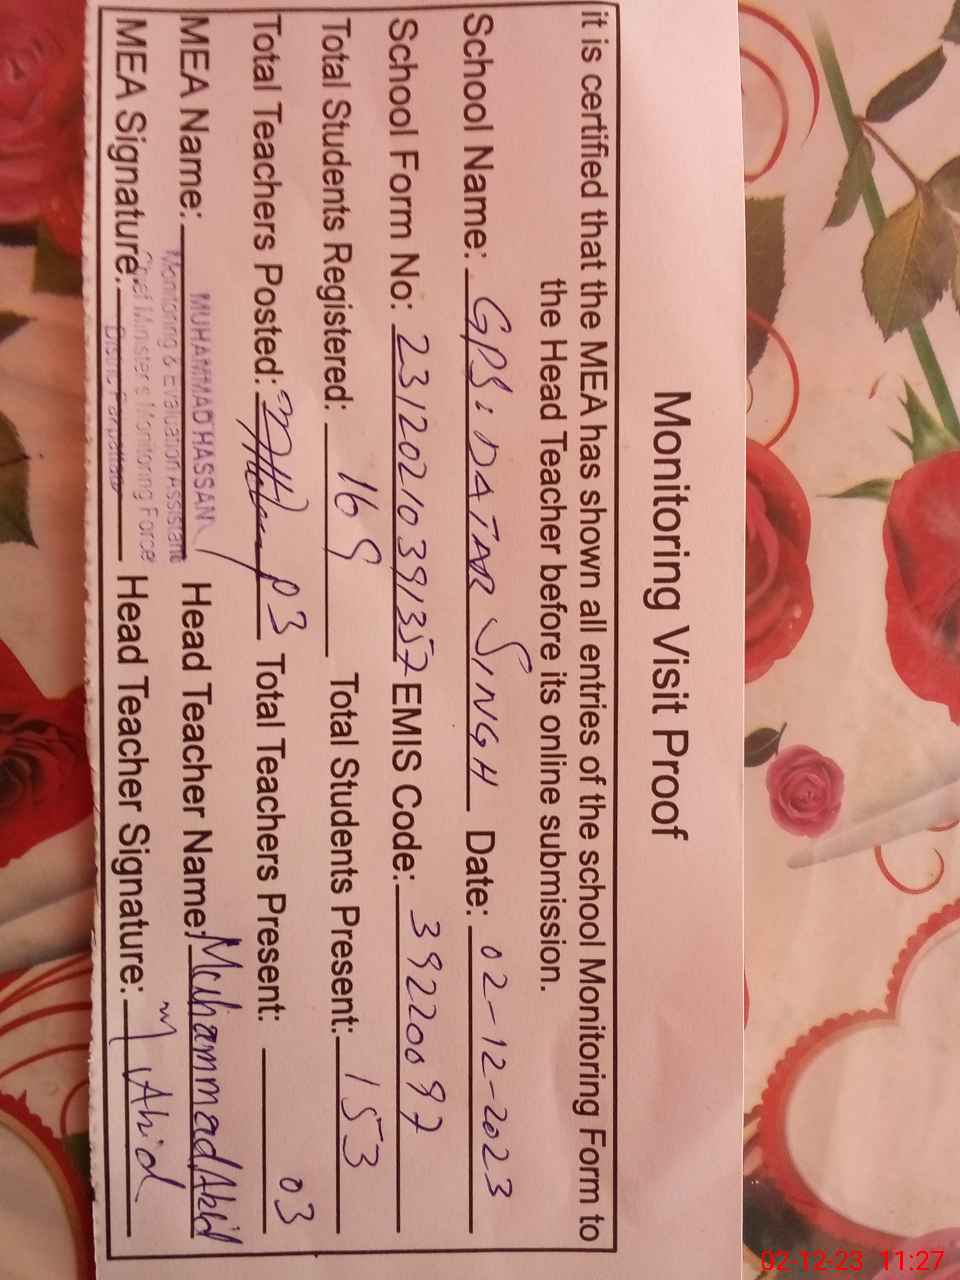 Monitoring Visit Proof
it is certified that the MEA has shown all entries of the school Monitoring Form to
the Head Teacher before its online submission.
School Name: GPS: DATAR SINGH Date: 02-12-2023
School Form No: 23120210391357 EMIS Code: 39220097
Total Students Registered: 169 Total Students Present: 153
Total Teachers Posted: 03 Total Teachers Present: 03
MEA Name: MUHAMMAD HASSAN Head Teacher Name: Muhammad
Monitoring & Evaluation Assistant
Chief Minister's Monitoring Force
MEA Signature: District Pakpattan Head Teacher Signature:
02-12-23 11:27